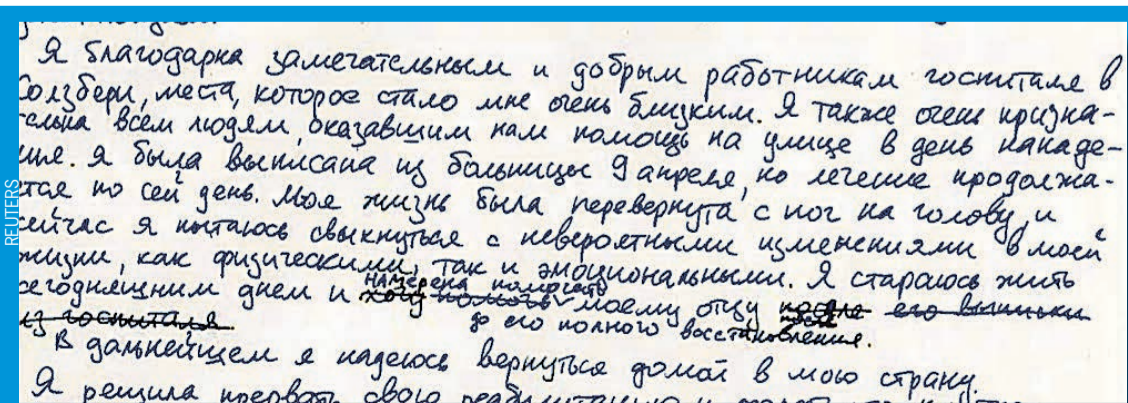 Я благодарна замечательным и добрым работникам госпиталя в
Солзбери, места, которое стало мне очень близким. Я также очень призна-
тельна всем людям, оказавшим нам помощь на улице в день нападе-
ния. Я была выписана из больницы 9 апреля, но лечение продолжа-
ется по сей день. Моя жизнь была перевернута с ног на голову, и
сейчас я пытаюсь свыкнуться с невероятными изменениями в моей
жизни, как физическими, так и эмоциональными. Я стараюсь жить
сегодняшним днем и хочу помочь намерена помогать моему отцу после его выписки
из госпиталя до его полного восстановления.
В дальнейшем я надеюсь вернуться домой в мою страну.
Я решила прервать свою реабилитацию и
REUTERS